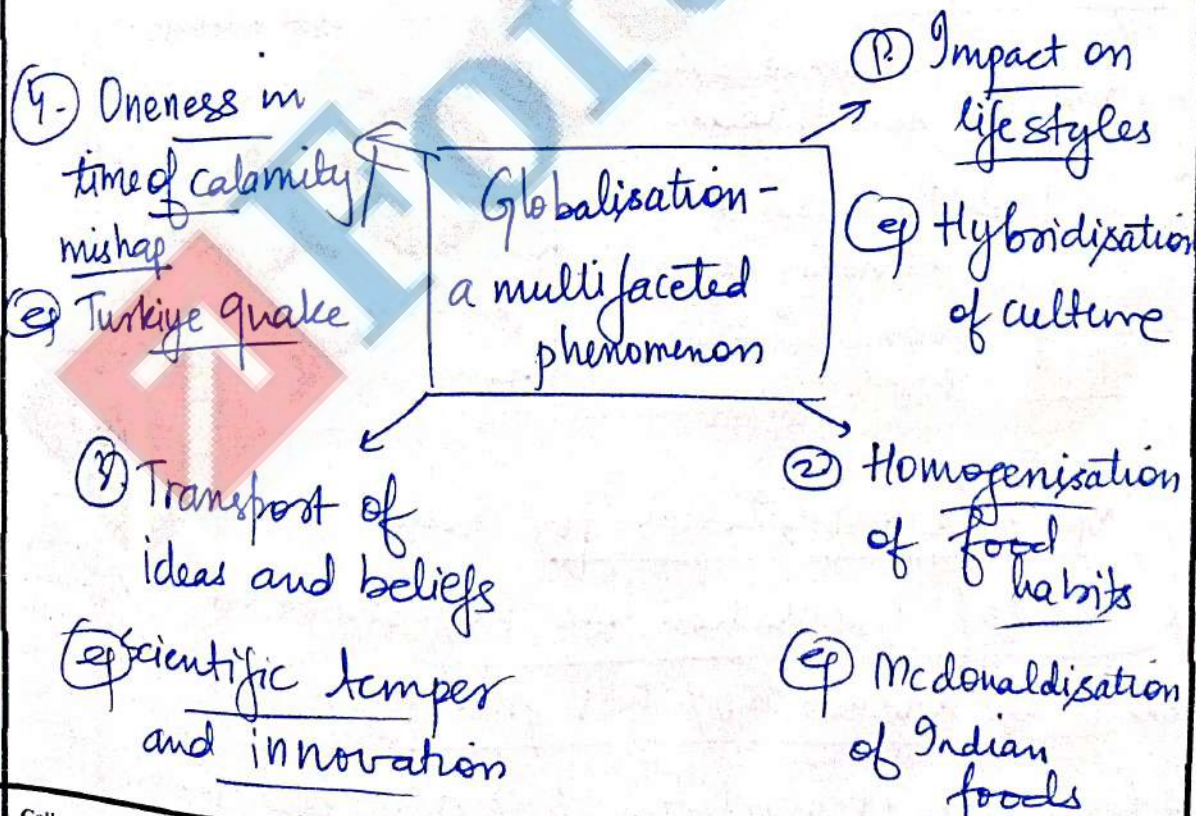 Globalisation -
a multifaceted
phenomenon
① Impact on
lifestyles
eg Hybridisation
of culture
② Homogenisation
of food
habits
eg Mcdonaldisation
of Indian
foods
③ Transport of
ideas and beliefs
eg Scientific temper
and innovation
4. Oneness in
time of calamity/
mishap
eg Turkiye quake